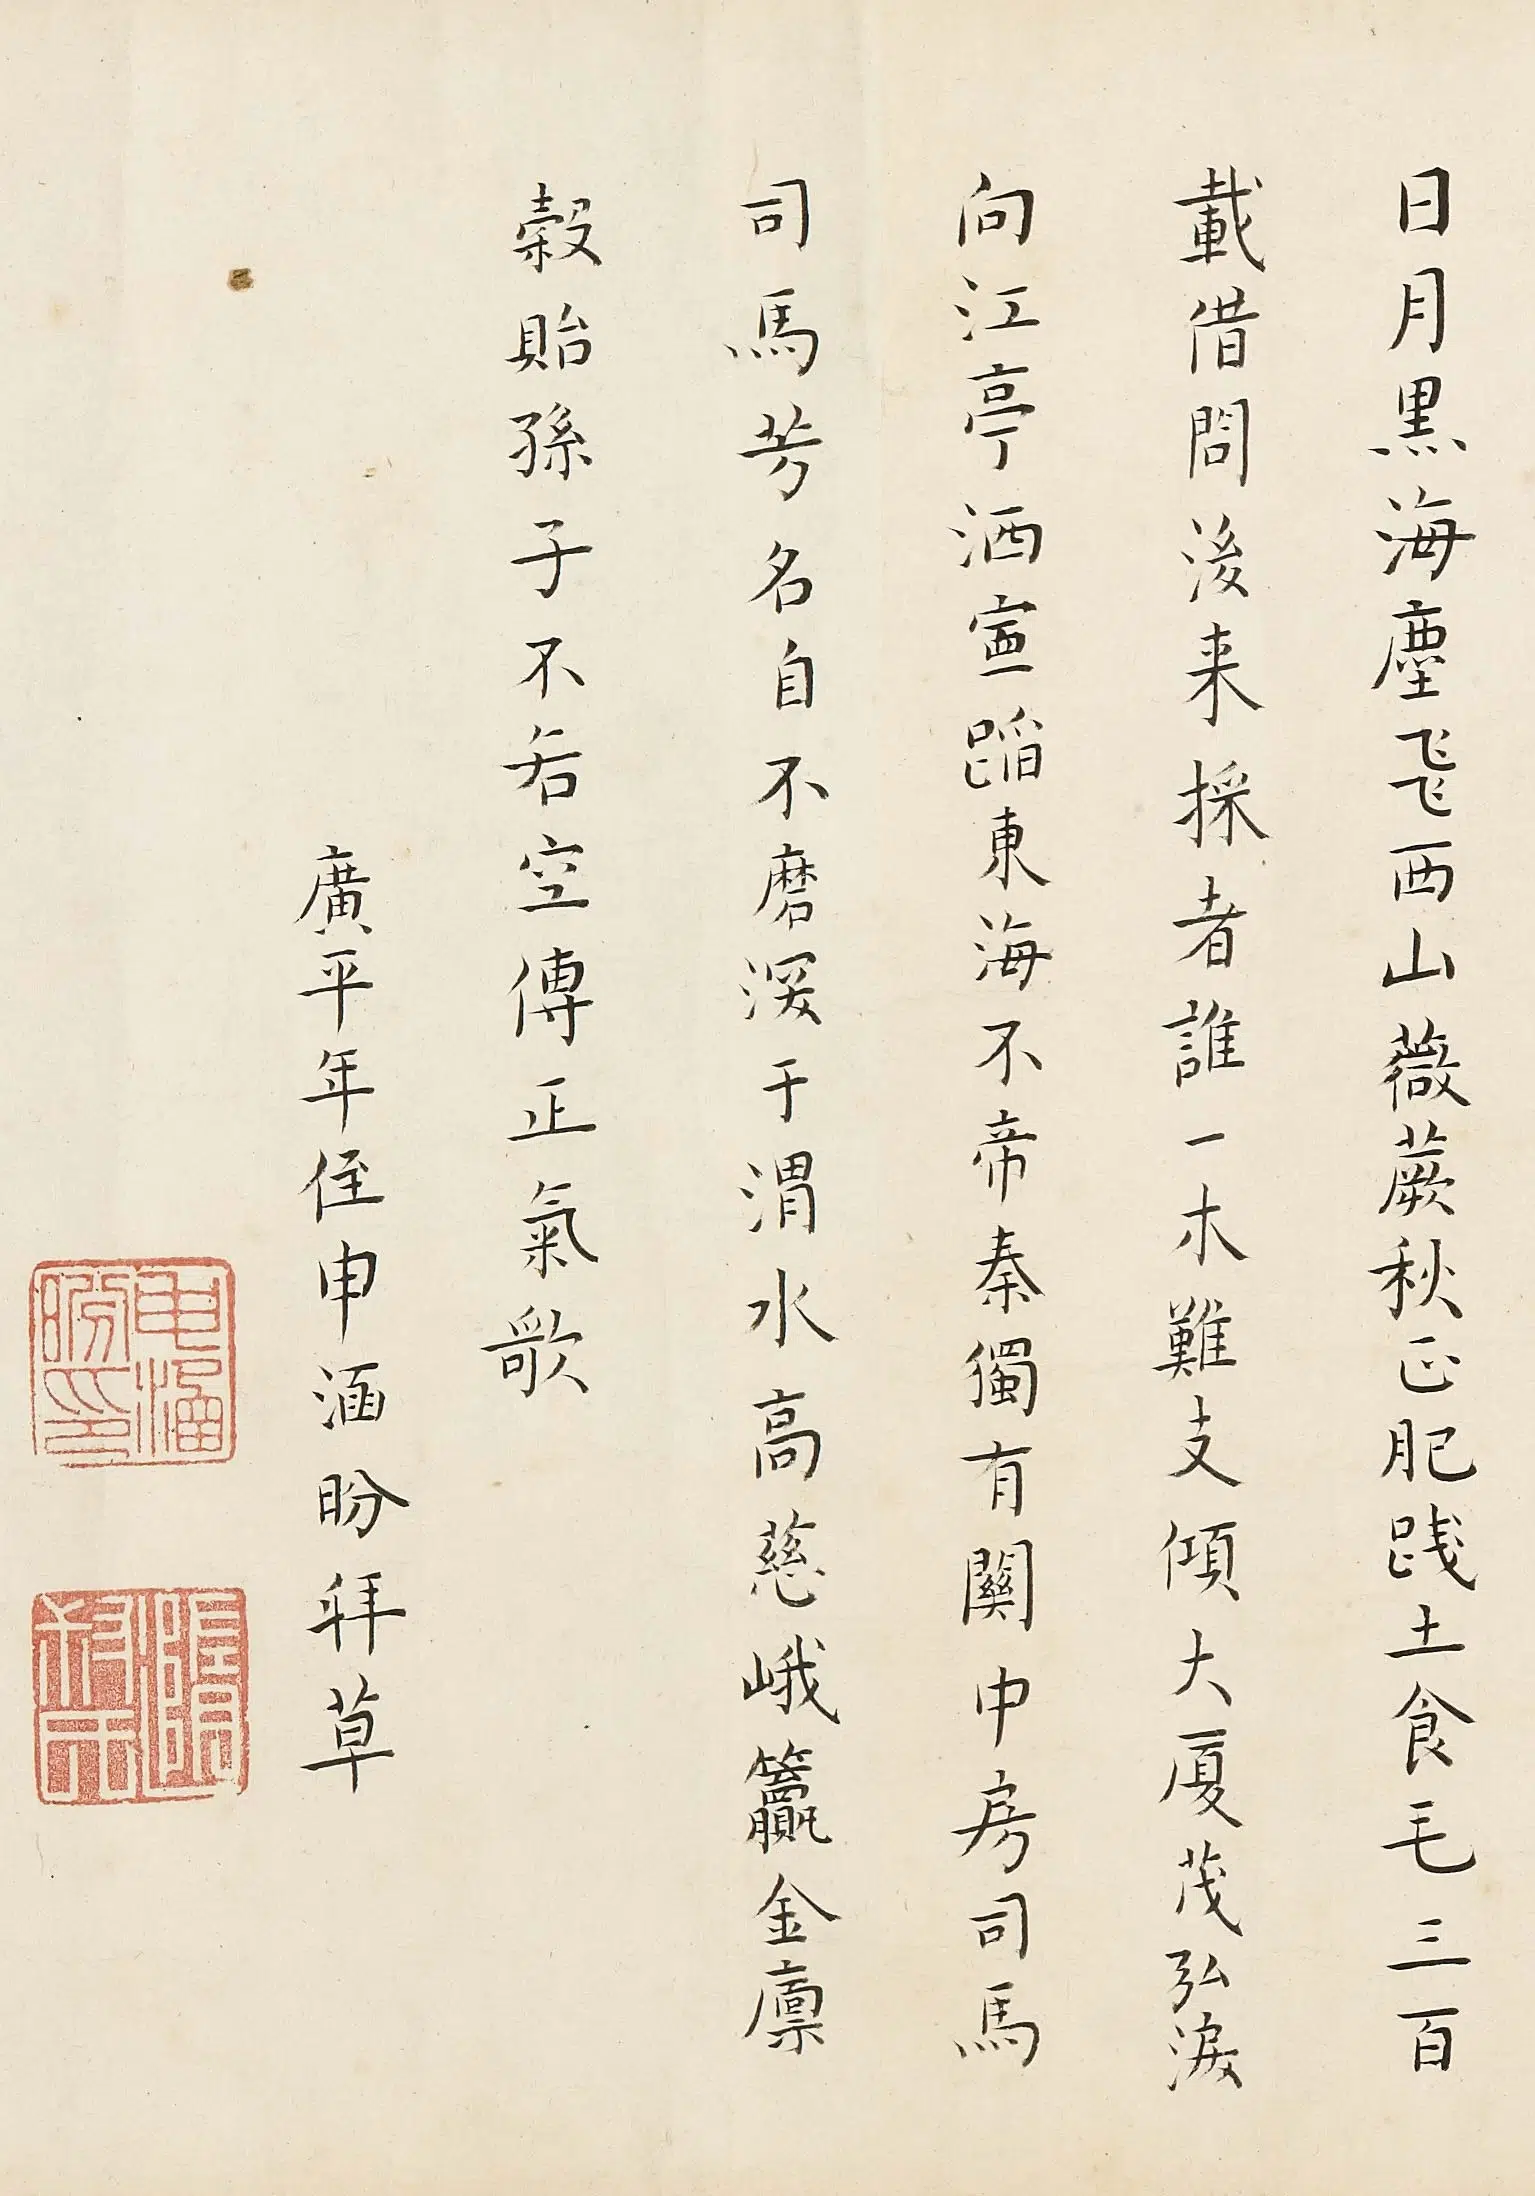 日月黑海塵飛西山薇蕨秋正肥踐土食毛三百
載借問後来採者誰一木難支傾大厦茂弘淚
向江亭洒寧蹈東海不帝秦獨有關中房司馬
司馬芳名自不磨深于渭水高慈峨籯金廪
穀貽孫子不若空傳正氣歌
廣平年侄申涵盼拜草
申涵
盼印